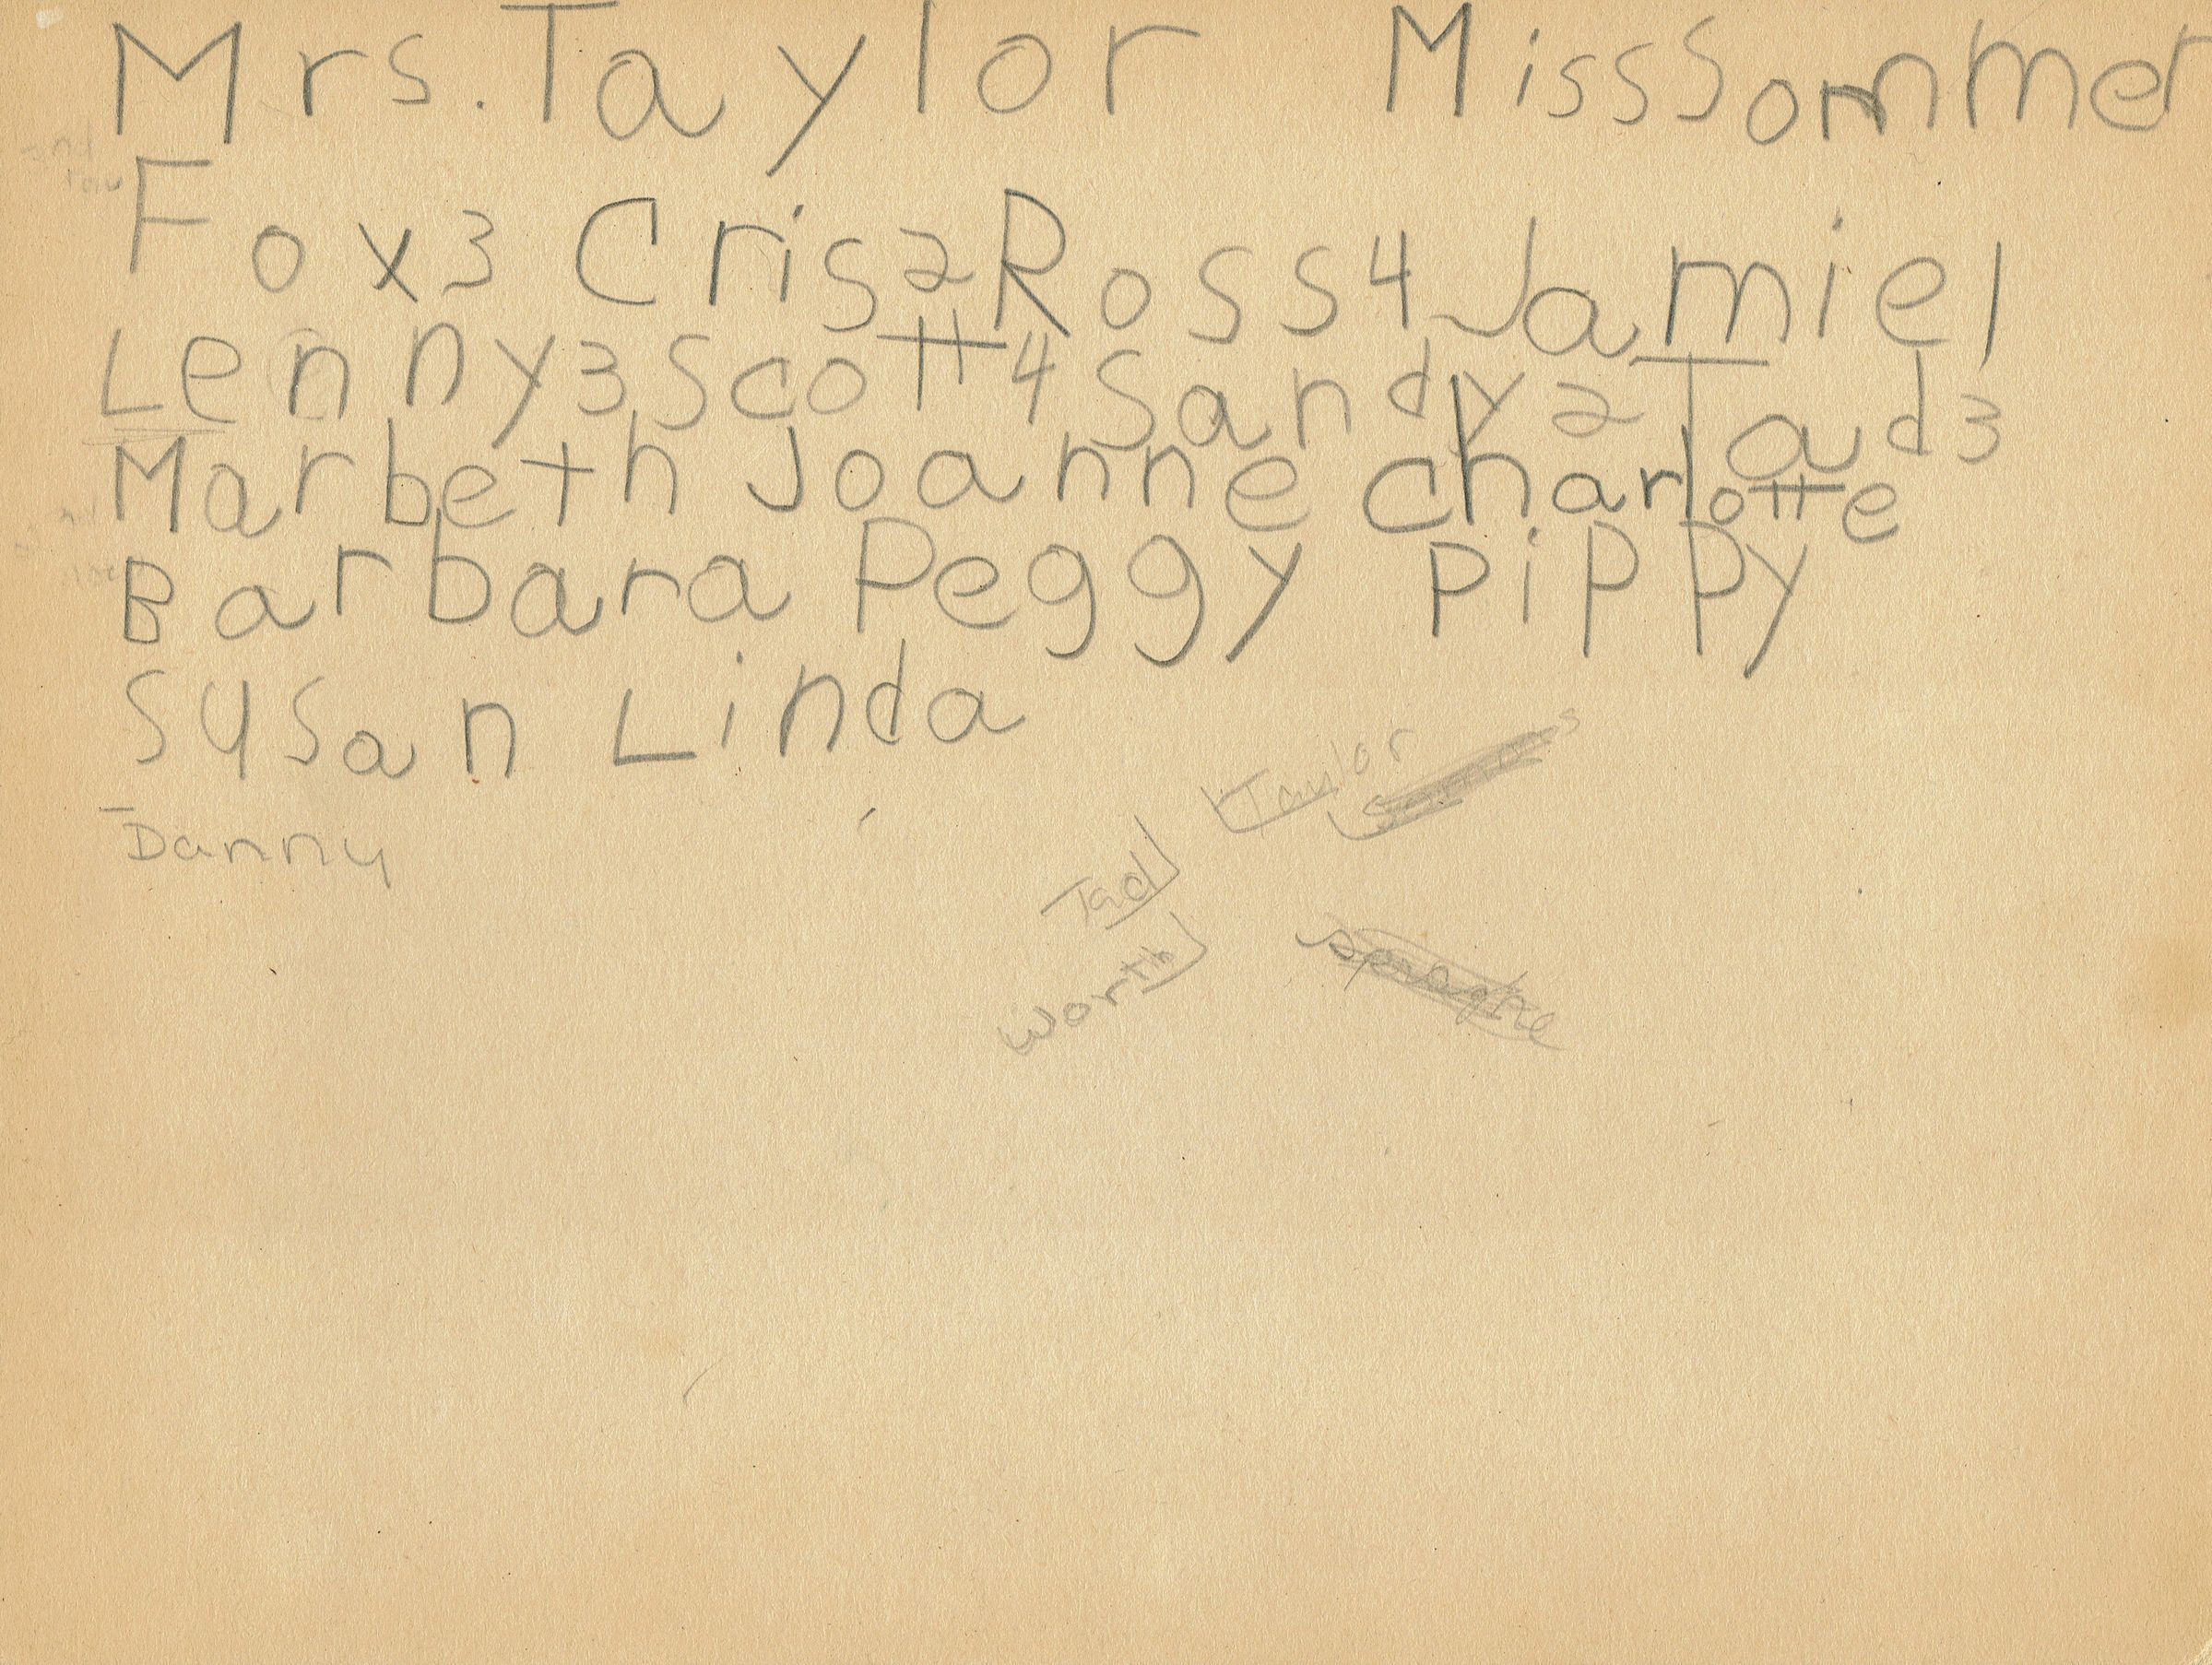 Mrs. Taylor Miss Sommer
Fox 3 Cris 2 Ross 4 Jamie 1
Lenny 3 Scott 4 Sandy 2 Taud 3
Marbeth Joanne Charlotte
Barbara Peggy Pippy
Susan Linda
Danny
Taylor
Tad
Worth
Sprague